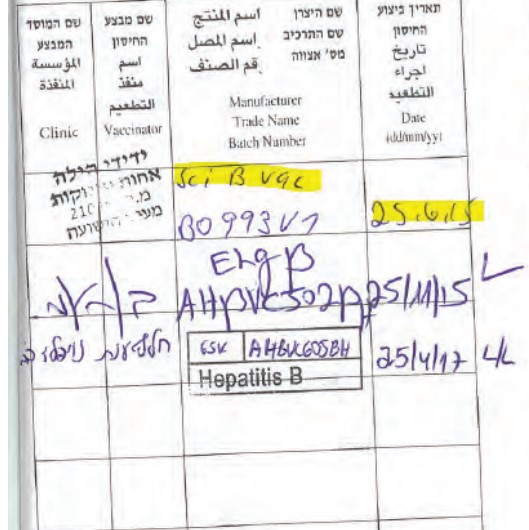 תאריך ביצוע
החיסון
تاريخ
اجراء
التطعيم
Date
(dd/mm/yy)
שם היצרן اسم المنتج
שם התרכיב اسم المصل
מס' אצווה رقم الصنف
Manufacturer
Trade Name
Batch Number
שם מבצע
החיסון
اسم
منفذ
التطعيم
Vaccinator
שם המוסד
המבצע
المؤسسة
المنفذة
Clinic
ידידי הילה
אחות
Sci B Vac
B0993V1
25.6.15
Eng B
AHBVC502
25/11/15
GSK AHBVC605BH
Hepatitis B
25/4/17